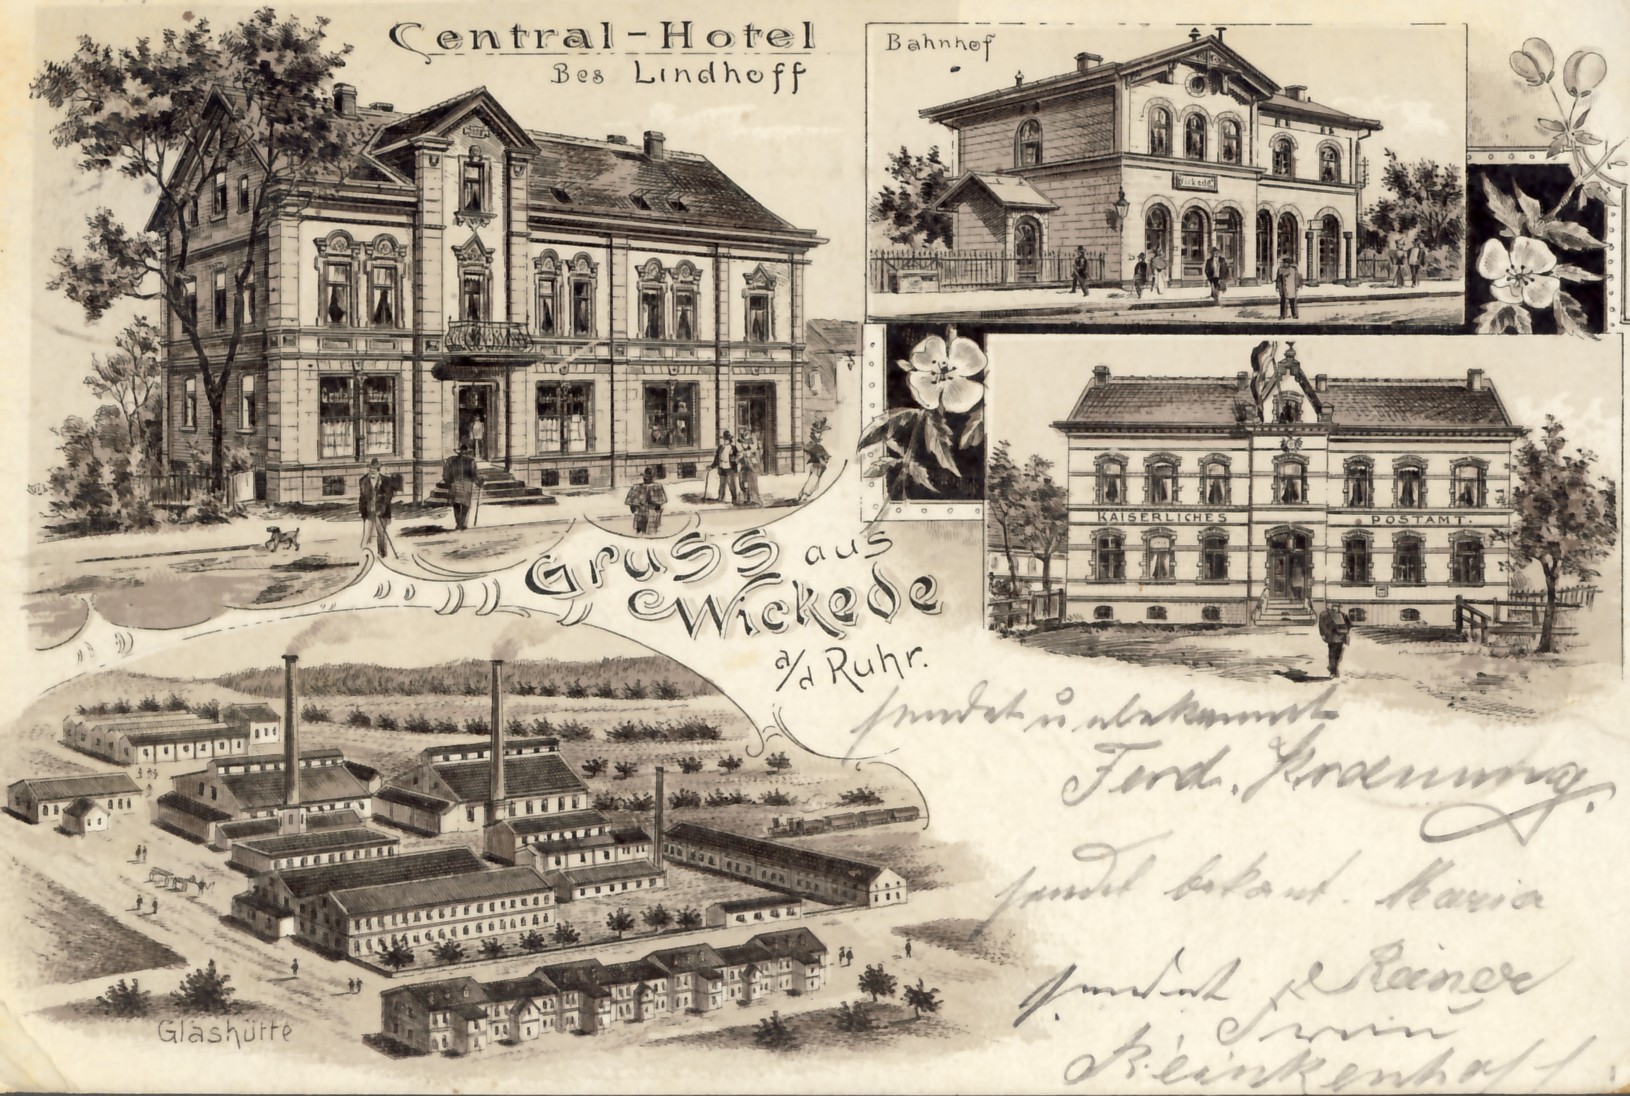 Central-Hotel
Bes Lindhoff
Bahnhof
Wickede
KAISERLICHES POSTAMT.
Gruss aus
Wickede
a/d Ruhr.
Glashütte
sendet unbekannt
Ferd.
sendet bekant. Maria
sendet
Reinkenhoff